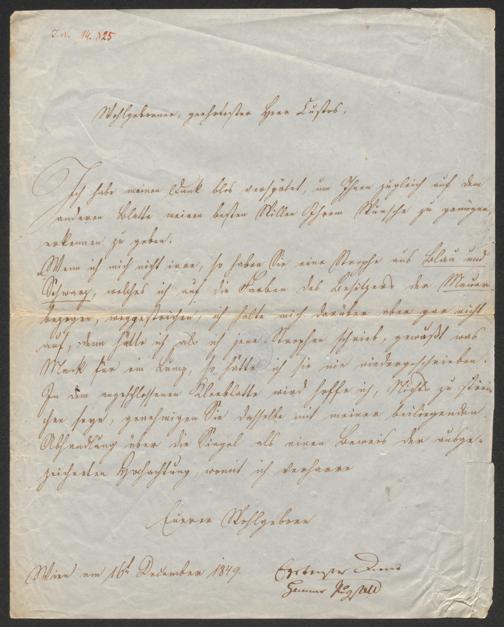 I.N. 14.525
Wohlgeborner, geehrtester Herr Custos,
Ich habe meinen Dank blos verspätet, um Ihnen zugleich auf dem
anderen Blatte meinen besten Willen Ihrem Wunsche zu genügen,
erkennen zu geben.
Wenn ich mich nicht irre, so haben Sie eine Strophe aus Blau und
Schwarz, welches ich auf die Farben des Besitzers der Mauer
bezogen, weggestrichen, ich halte mich darüber aber gar nicht
auf, denn hätte ich als ich jene Strophen schrieb, gewußt was
Mark für ein, so hätte ich sie nie niedergeschrieben.
In dem angeschlossenen Kleeblatte wird hoffe ich, Nichts zu streichen
seyn, genehmigen Sie dasselbe mit meiner beiliegenden
Abhandlung über die Siegel als einen Beweis der ausge-
zeichneten Hochachtung, womit ich verharre
Euerer Wohlgeboren
Wien am 16t December 1849.
Ergebenster Diener
Hammer Purgstall